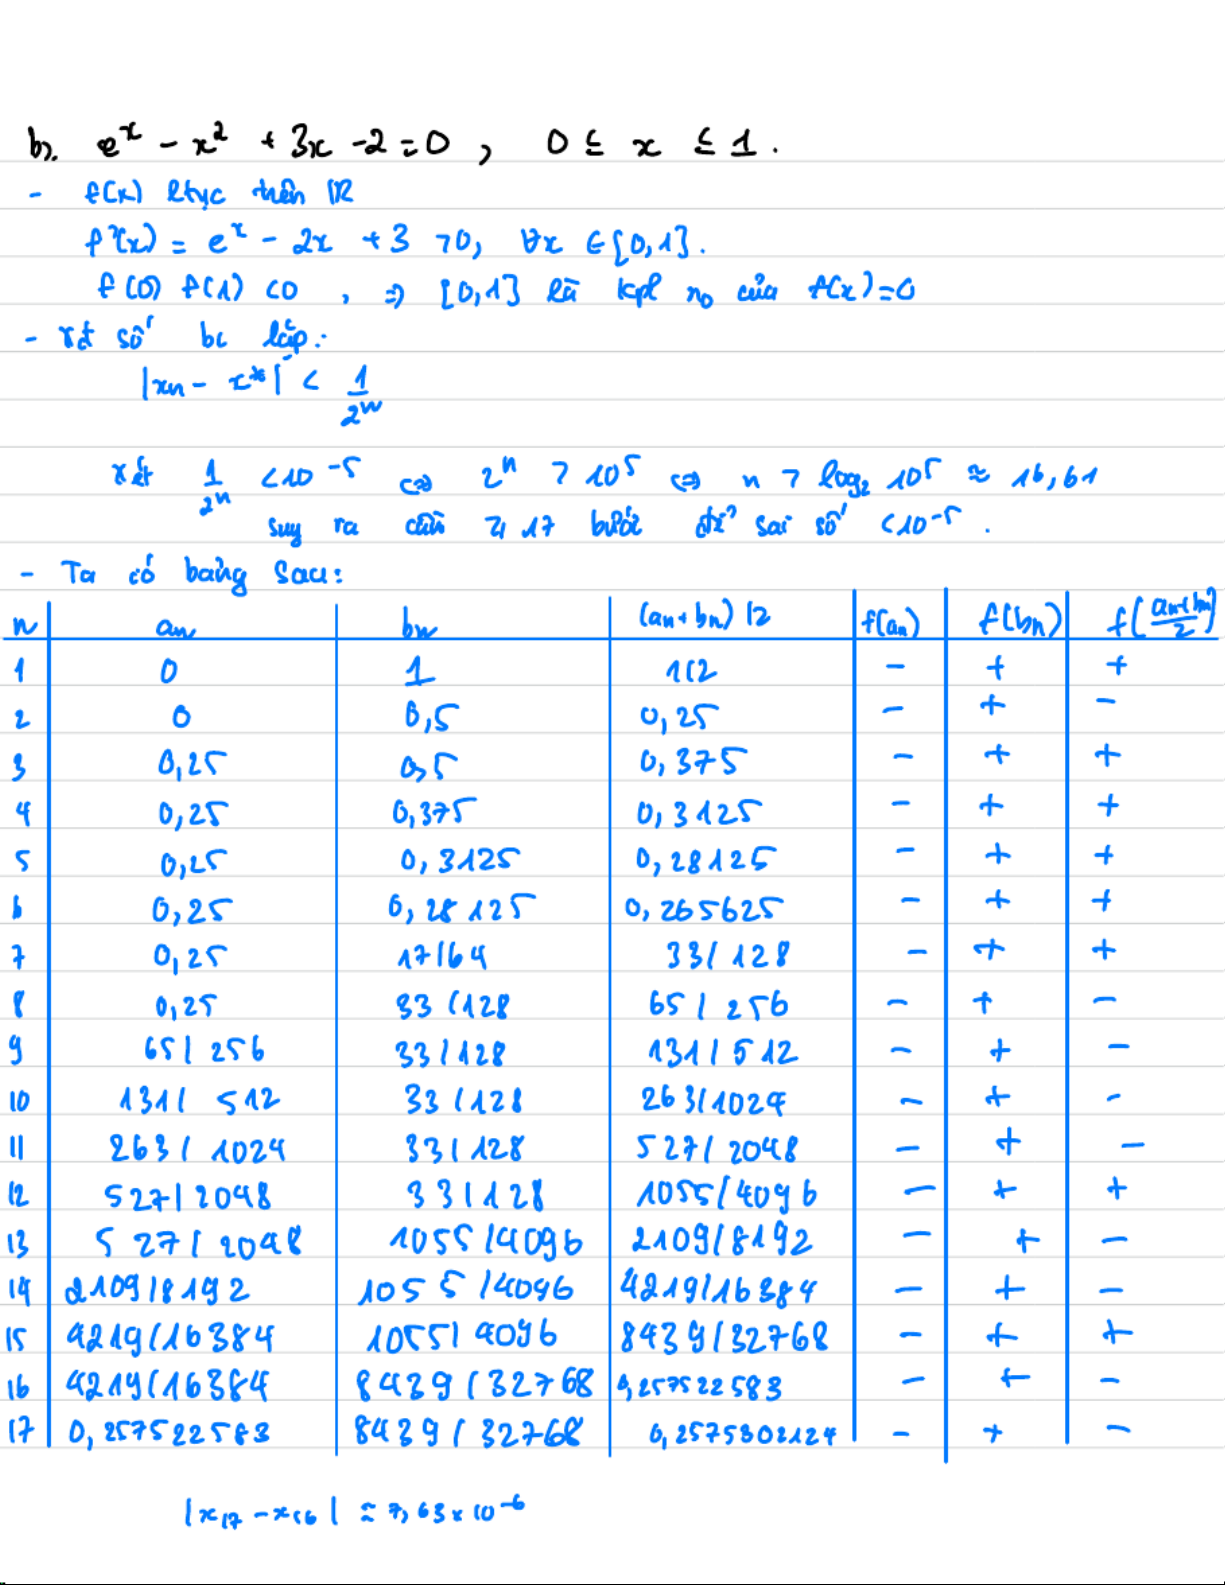 b). e^x - x^2 + 3x - 2 = 0 , 0 ≤ x ≤ 1 .
- f(x) ltục trên ℝ
f'(x) = e^x - 2x + 3 > 0, ∀x ∈ [0,1].
f(0) f(1) < 0 , ⇒ [0,1] là kpl n₀ của f(x)=0
- xét số bc lặp:
|xn - x*| < 1/2^n
xét 1/2^n < 10^-5 ⇔ 2^n > 10^5 ⇔ n > log₂ 10^5 ≈ 16,61
suy ra cần ≥ 17 bước để sai số < 10^-5 .
- Ta có bảng sau:
n an bn (an+bn)/2 f(an) f(bn) f((an+bn)/2)
1 0 1 1/2 - + +
2 0 0,5 0,25 - + -
3 0,25 0,5 0,375 - + +
4 0,25 0,375 0,3125 - + +
5 0,25 0,3125 0,28125 - + +
6 0,25 0,28125 0,265625 - + +
7 0,25 17/64 33/128 - + +
8 0,25 33/128 65/256 - + -
9 65/256 33/128 131/512 - + -
10 131/512 33/128 263/1024 - + -
11 263/1024 33/128 527/2048 - + -
12 527/2048 33/128 1055/4096 - + +
13 527/2048 1055/4096 2109/8192 - + -
14 2109/8192 1055/4096 4219/16384 - + -
15 4219/16384 1055/4096 8439/32768 - + +
16 4219/16384 8439/32768 0,257522583 - + -
17 0,257522583 8439/32768 0,2575302124 - + -
|x17 - x16| ≈ 7,63x10^-6